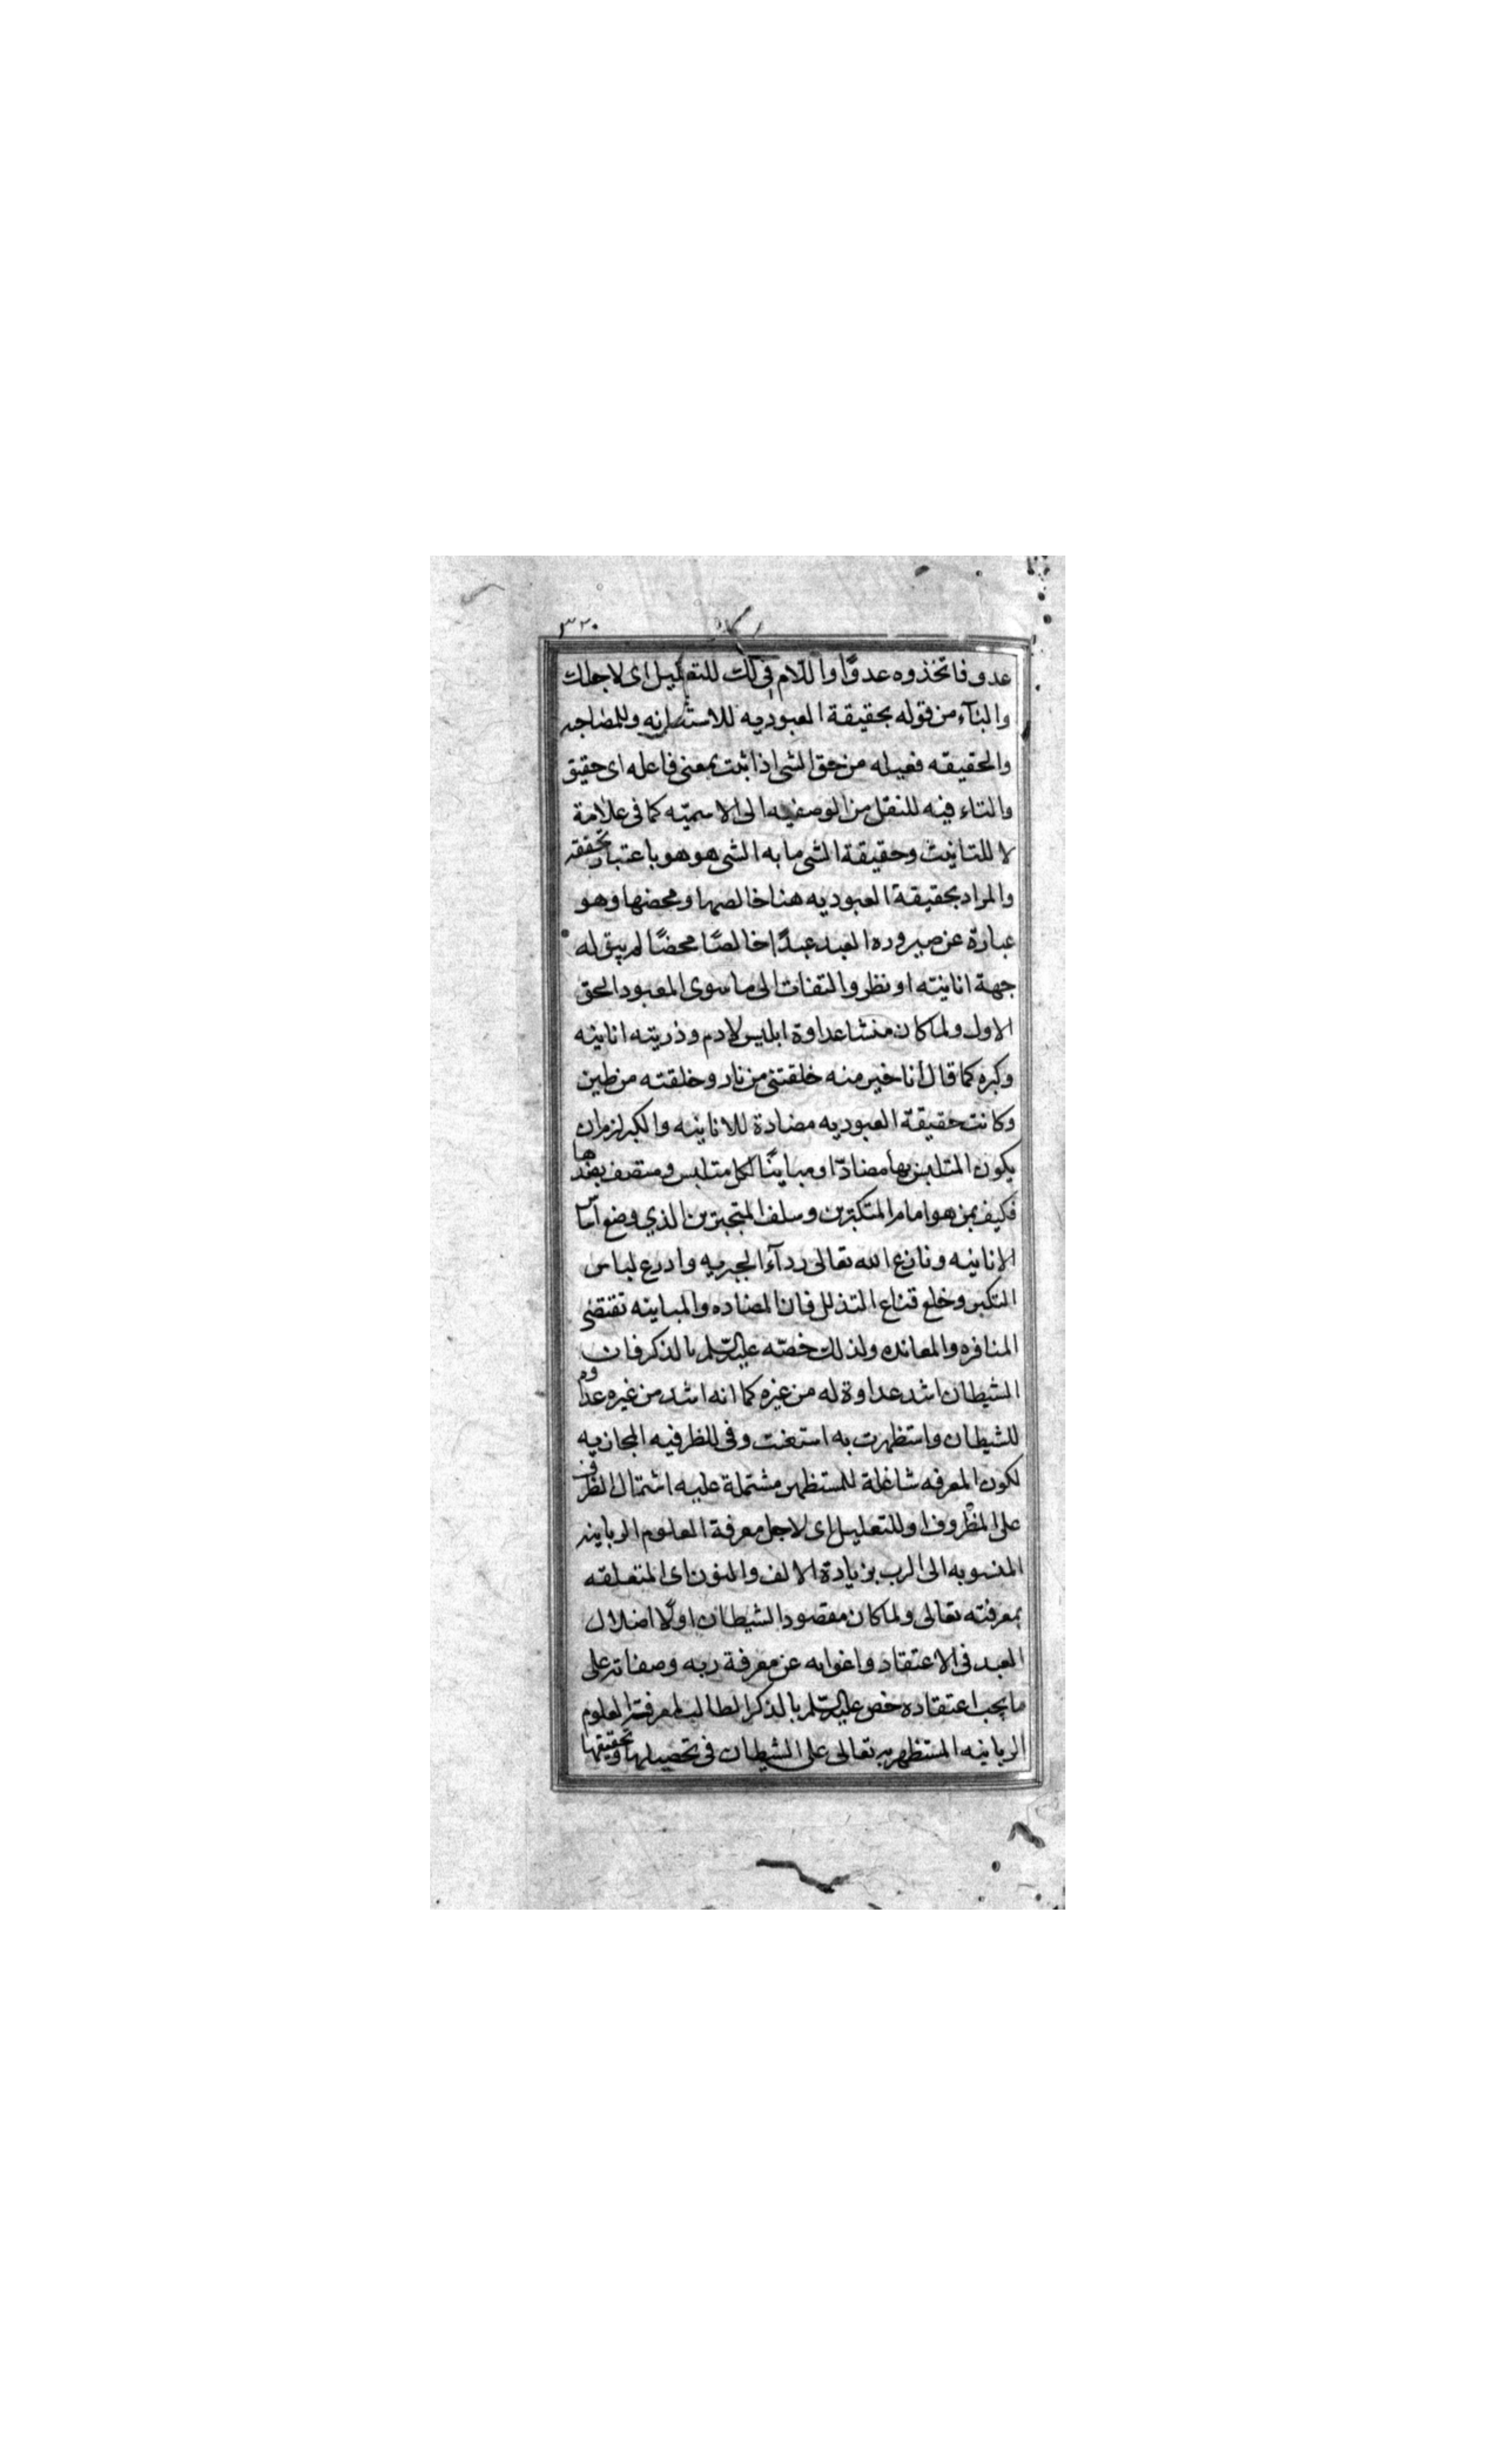 ٣٢٠
عدو فاتخذوه عدوًّا واللّام في لك للتعليل اى لاجلك
والبآء من قوله بحقيقة العبوديه للاستعانه وللمصاحبه
والحقيقه فعيله من حق الشى اذا ثبت بمعنى فاعله اى حقيق
والتاء فيه للنقل من الوصفيه الى الاسميّه كما فى علامة
لا للتانيث وحقيقة الشى ما به الشى هو هو باعتبار تحققه
والمراد بحقيقة العبوديه هنا خالصها ومحضها وهو
عبارة عن صيروره العبد عبدًا خالصًا محضًا لم يبق له
جهة انانيته او نظر والتفات الى ما سوى المعبود الحق
الاول ولما كان منشا عداوة ابليس لادم وذريته انانيته
وكبره كما قال انا خير منه خلقتنى من نار وخلقته من طين
وكانت حقيقة العبوديه مضادة للانانيه والكبر لزم ان
يكون المتلبس بها مضادّا ومباينًا لكل متلبس ومتصف بضدها
فكيف بمن هو امام المتكبّرين وسلف المتجبّرين الذي وضع اساس
الانانيه ونازع الله تعالى ردآء الجبريه وادرع لباس
التكبر وخلع قناع التذلل فان المضاده والمباينه تقتضى
المنافره والمعانده ولذلك خصّه عليه السّلم بالذكر فان
الشيطان اشد عداوة له من غيره كما انه اشد من غيره عداوة
للشيطان واستظهرت به استعنت وفى للظرفيه المجازيه
لكون المعرفه شاغلة للمستظهر مشتملة عليه اشتمال الظرف
على المظروف او للتعليل اى لاجل معرفة العلوم الربانيه
المنسوبه الى الرب بزيادة الالف والنون اى المتعلقه
بمعرفته تعالى ولما كان مقصود الشيطان اولًا اضلال
العبد فى الاعتقاد واغوايه عن معرفة ربه وصفاته على
ما يجب اعتقاده خص عليه السّلم بالذكر الطالب لمعرفة العلوم
الربانيه المستظهر به تعالى على الشيطان فى تحصيلها وتحقيقها